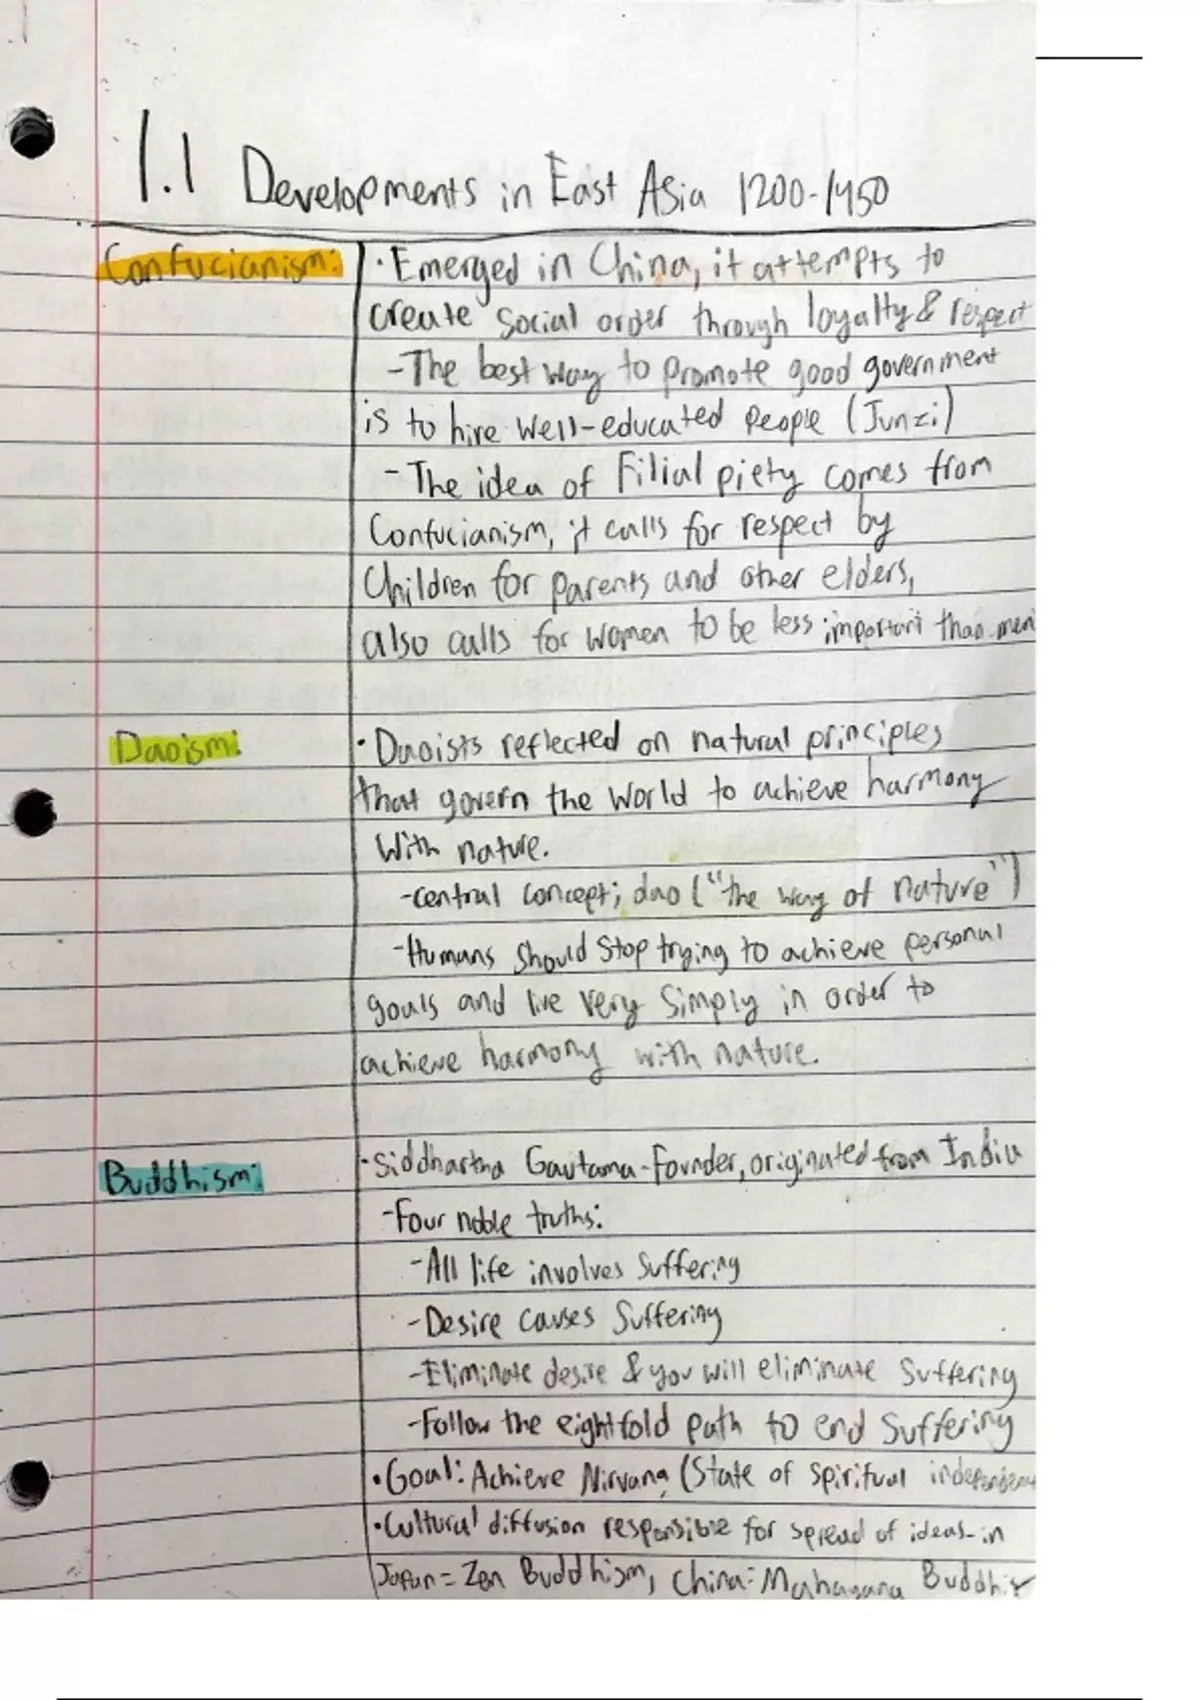 1.1 Developments in East Asia 1200-1450
Confucianism:
· Emerged in China, it attempts to
create social order through loyalty & respect
- The best way to promote good government
is to hire well-educated people (Junzi)
- The idea of Filial piety comes from
Confucianism, it calls for respect by
Children for parents and other elders,
also calls for women to be less important than men
Daoism:
· Daoists reflected on natural principles
that govern the world to achieve harmony
with nature.
-central concept; dao ("the way of nature")
-Humans should stop trying to achieve personal
goals and live very simply in order to
achieve harmony with nature.
Buddhism:
·Siddhartha Gautama-Founder, originated from India
-Four noble truths:
-All life involves suffering
-Desire causes suffering
-Eliminate desire & you will eliminate suffering
-Follow the eightfold path to end suffering
·Goal: Achieve Nirvana (State of spiritual
·Cultural diffusion responsible for spread of ideas-in
Japan= Zen Buddhism, China: Mahayana